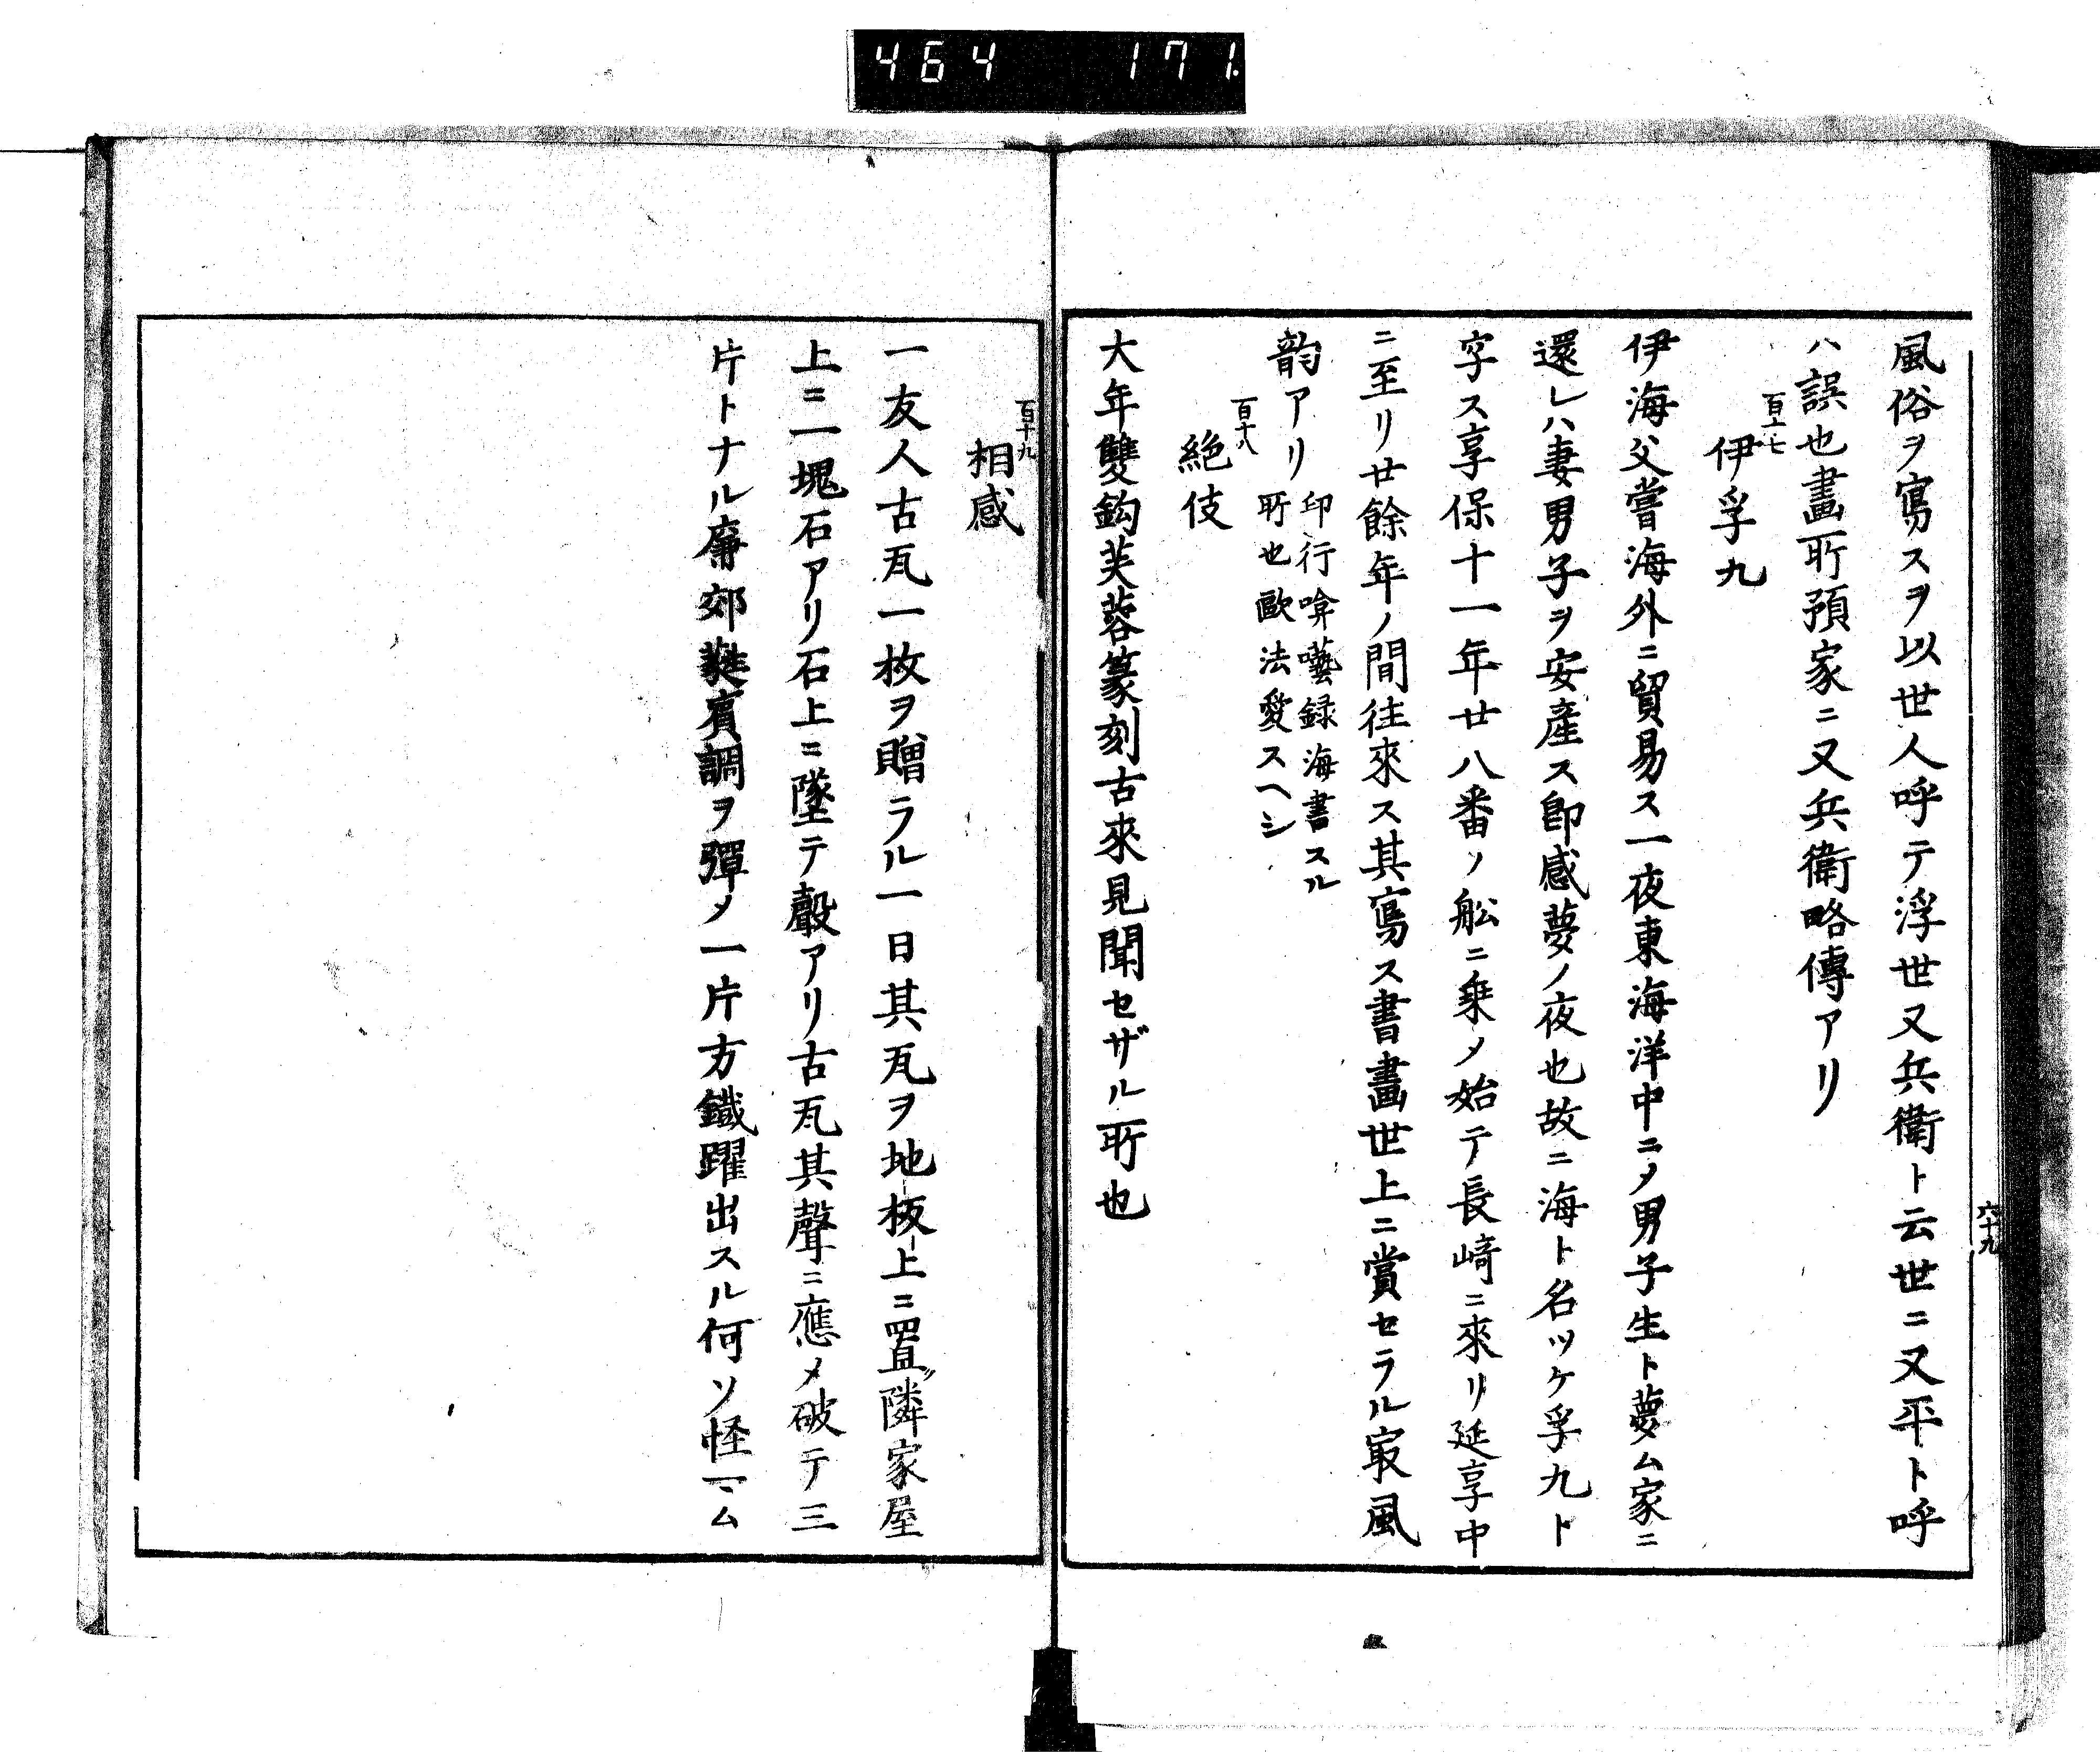 464 171.
風俗ヲ寫スヲ以世人呼テ浮世又兵衛ト云世ニ又平ト呼
ハ誤也畫所預家ニ又兵衛略傳アリ
百十七
伊孚九
伊海父嘗海外ニ貿易ス一夜東海洋中ニ〆男子生ト夢ム家ニ
還レハ妻男子ヲ安産ス即感夢ノ夜也故ニ海ト名ツケ孚九ト
字ス享保十一年廿八番ノ舩ニ乗〆始テ長﨑ニ來リ延享中
ニ至リ廿餘年ノ間往來ス其寫ス書畫世上ニ賞セラル㝡風
韵アリ
印行喭囈録海書スル
所也歐法愛スヘシ
百十八
絶伎
大年雙鈎芙蓉篆刻古來見聞セザル所也
六十九
百十九
相感
一友人古瓦一枚ヲ贈ラル一日其瓦ヲ地板上ニ置隣家屋
上ニ一塊石アリ石上ニ墜テ聲アリ古瓦其聲ニ應〆破テ三
片トナル廉郊蕤賔調ヲ彈〆一片方鐵躍出スル何ソ怪マム